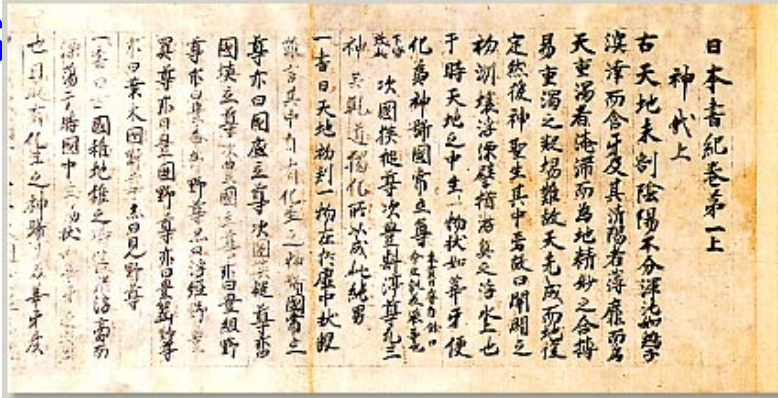 日本書紀巻第一上
神代上
古天地未剖陰陽不分渾沌如鶏子
溟涬而含牙及其清陽者薄靡而為
天重濁者淹滞而為地精妙之合搏
易重濁之凝場難故天先成而地後
定然後神聖生其中焉故曰開闢之
初洲壌浮漂譬猶游魚之浮水上也
于時天地之中生一物状如葦牙便
化為神號國常立尊
次國狭槌尊次豊斟渟尊凡三
神矣乾道獨化所以成此純男
一書曰天地初判一物在於虚中状貌
難言其中自有化生之神號國常立
尊亦曰國底立尊次國狭槌尊亦曰
國狭立尊次豊國主尊亦曰豊組野
尊亦曰豊香節野尊亦曰浮經野豊
買尊亦曰豊國野尊亦曰豊齧野尊
亦曰葉木國野尊亦曰見野尊
一書曰 國稚地稚之時譬 浮膏而
漂蕩于時國中生物状如葦牙之
也因此有化生之神號 美葦牙彦